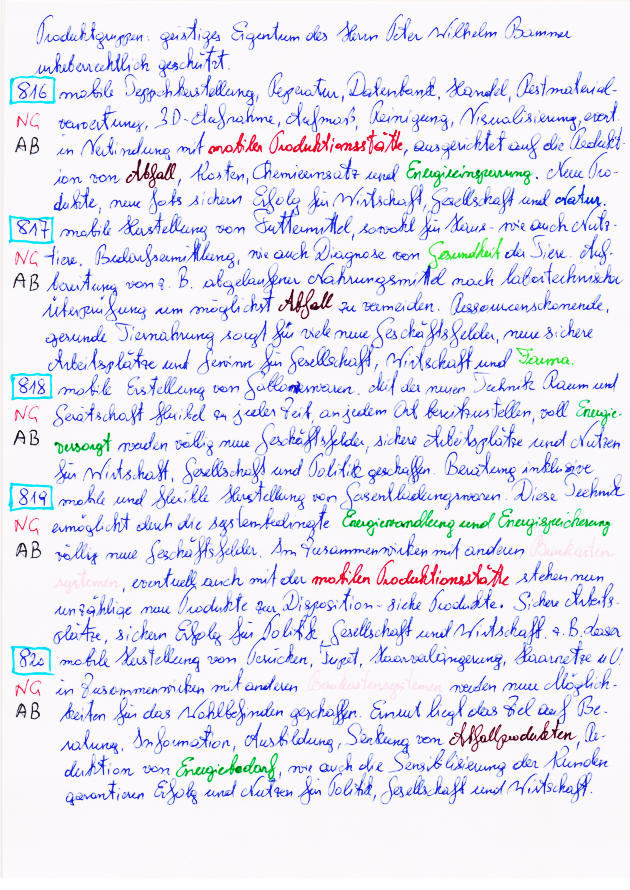 Produktgruppen: geistiges Eigentum des Herrn Peter Wilhelm Bammer
urheberrechtlich geschützt.
816 mobile Teppichherstellung, Reperatur, Datenbank, Handel, Restmaterial-
NG verwertung, 3D-Aufnahme, Aufmaß, Reinigung, Visualisierung, event.
AB in Verbindung mit mobilen Produktionsstätte, ausgerichtet auf die Redukt-
ion von Abfall, Kosten, Chemieeinsatz und Energieeinsparung. Neue Pro-
dukte, neue Jobs sichern Erfolg für Wirtschaft, Gesellschaft und Natur.
817 mobile Herstellung von Futtermittel, sowohl für Haus- wie auch Nutz-
NG tiere. Bedarfsermittlung, wie auch Diagnose von Gesundheit der Tiere. Auf-
AB bereitung von z. B. abgelaufener Nahrungsmittel nach labortechnischer
Überprüfung um möglichst Abfall zu vermeiden. Ressourcenschonende,
gesunde Tiernahrung sorgt für viele neue Geschäftsfelder, neue sichere
Arbeitsplätze und Gewinn für Gesellschaft, Wirtschaft und Fauna.
818 mobile Erstellung von Gablonzerwaren. Mit der neuen Technik Raum und
NG Gerätschaft flexibel zu jeder Zeit an jedem Ort bereitzustellen, voll Energie-
AB versorgt werden völlig neue Geschäftsfelder, sichere Arbeitsplätze und Nutzen
für Wirtschaft, Gesellschaft und Politik geschaffen. Beratung inklusive
819 mobile und flexible Herstellung von Gasentladungswaren. Diese Technik
NG ermöglicht durch die systembedingte Energiewandlung und Energiespeicherung
AB völlig neue Geschäftsfelder. Im Zusammenwirken mit anderen Baukasten
systemen, eventuell auch mit der mobilen Produktionsstätte stehen nun
unzählige neue Produkte zur Disposition - siehe Produkte. Sichere Arbeits-
plätze, sichern Erfolg für Politik, Gesellschaft und Wirtschaft. z. B. Laser
820 mobile Herstellung von Perücken, Tupet, Haarverlängerung, Haarnetze u. V.
NG in Zusammenwirken mit anderen Baukastensystemen werden neue Möglich-
AB keiten für das Wohlbefinden geschaffen. Erneut liegt das Ziel auf Be-
ratung, Information, Ausbildung, Senkung von Abfallprodukten, Re-
duktion von Energiebedarf, wie auch die Sensibilisierung der Kunden
garantieren Erfolg und Nutzen für Politik, Gesellschaft und Wirtschaft.